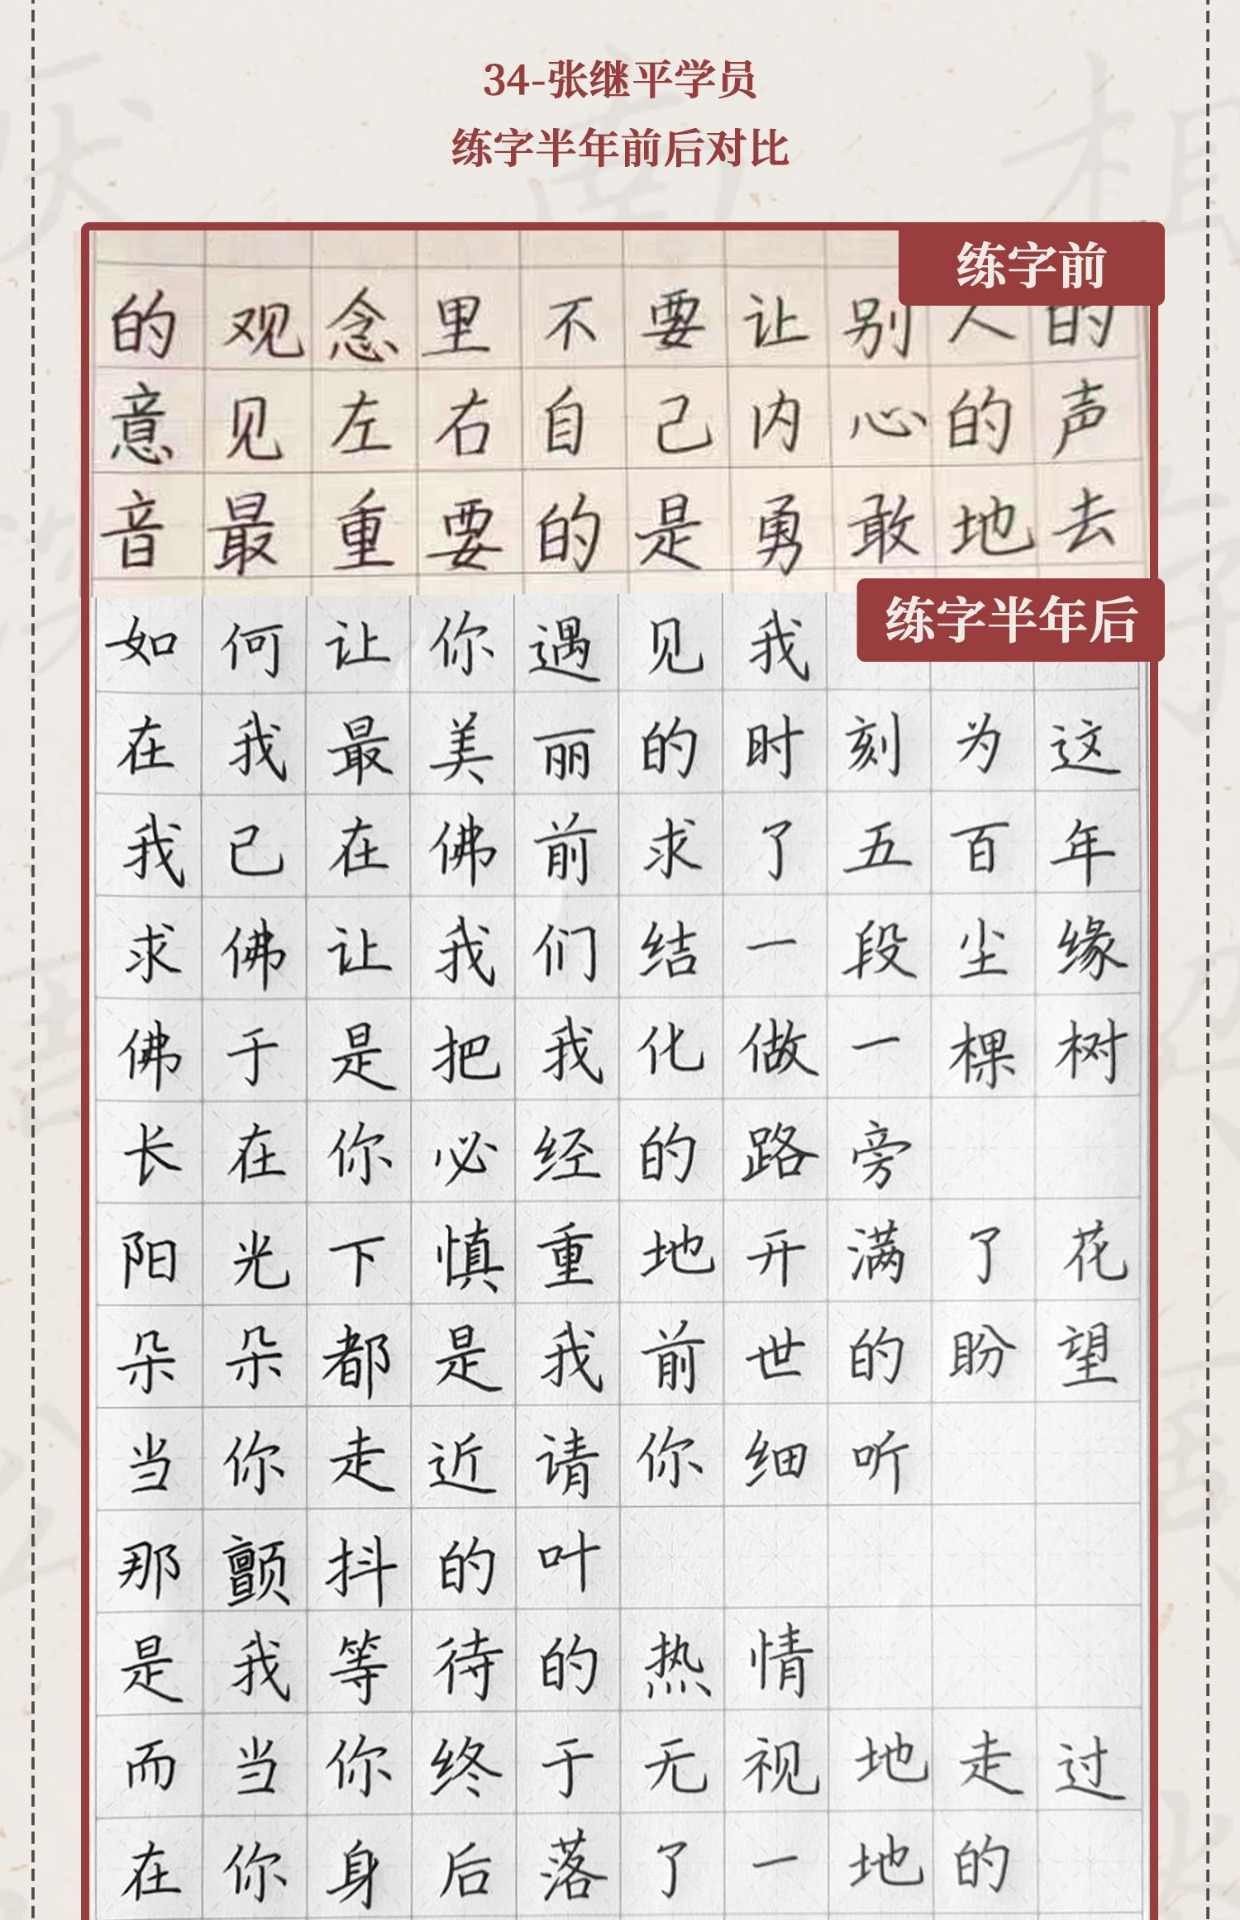 34-张继平学员
练字半年前后对比
练字前
的观念里不要让别人的
意见左右自己内心的声
音最重要的是勇敢地去
练字半年后
如何让你遇见我
在我最美丽的时刻为这
我己在佛前求了五百年
求佛让我们结一段尘缘
佛于是把我化做一棵树
长在你必经的路旁
阳光下慎重地开满了花
朵朵都是我前世的盼望
当你走近请你细听
那颤抖的叶
是我等待的热情
而当你终于无视地走过
在你身后落了一地的